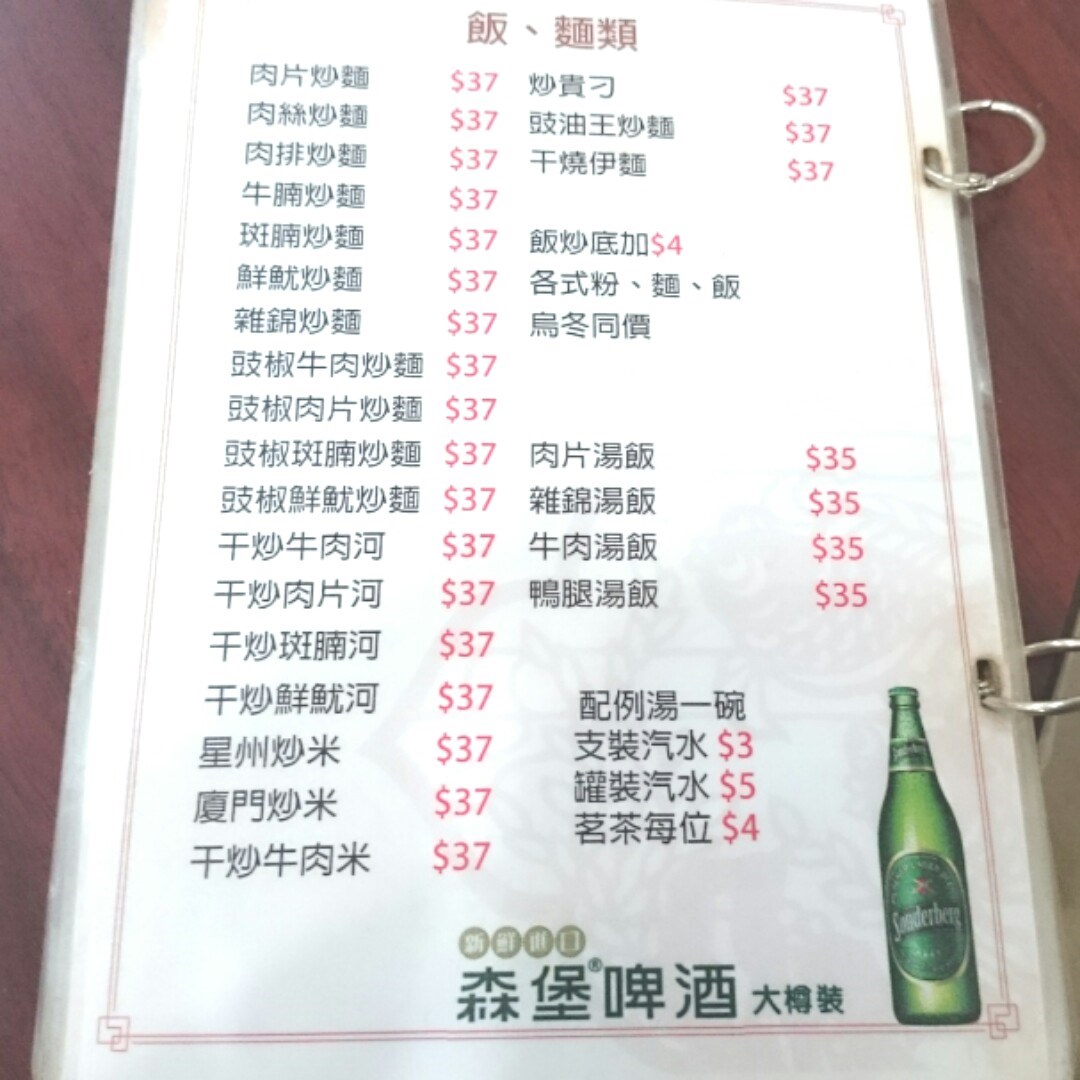 飯、麵類
肉片炒麵 $37
肉絲炒麵 $37
肉排炒麵 $37
牛腩炒麵 $37
斑腩炒麵 $37
鮮魷炒麵 $37
雜錦炒麵 $37
豉椒牛肉炒麵 $37
豉椒肉片炒麵 $37
豉椒斑腩炒麵 $37
豉椒鮮魷炒麵 $37
干炒牛肉河 $37
干炒肉片河 $37
干炒斑腩河 $37
干炒鮮魷河 $37
星州炒米 $37
廈門炒米 $37
干炒牛肉米 $37
炒貴刁 $37
豉油王炒麵 $37
干燒伊麵 $37
飯炒底加$4
各式粉、麵、飯
烏冬同價
肉片湯飯 $35
雜錦湯飯 $35
牛肉湯飯 $35
鴨腿湯飯 $35
配例湯一碗
支裝汽水 $3
罐裝汽水 $5
茗茶每位 $4
新鮮出口
森堡®啤酒 大樽裝
Sonderberg